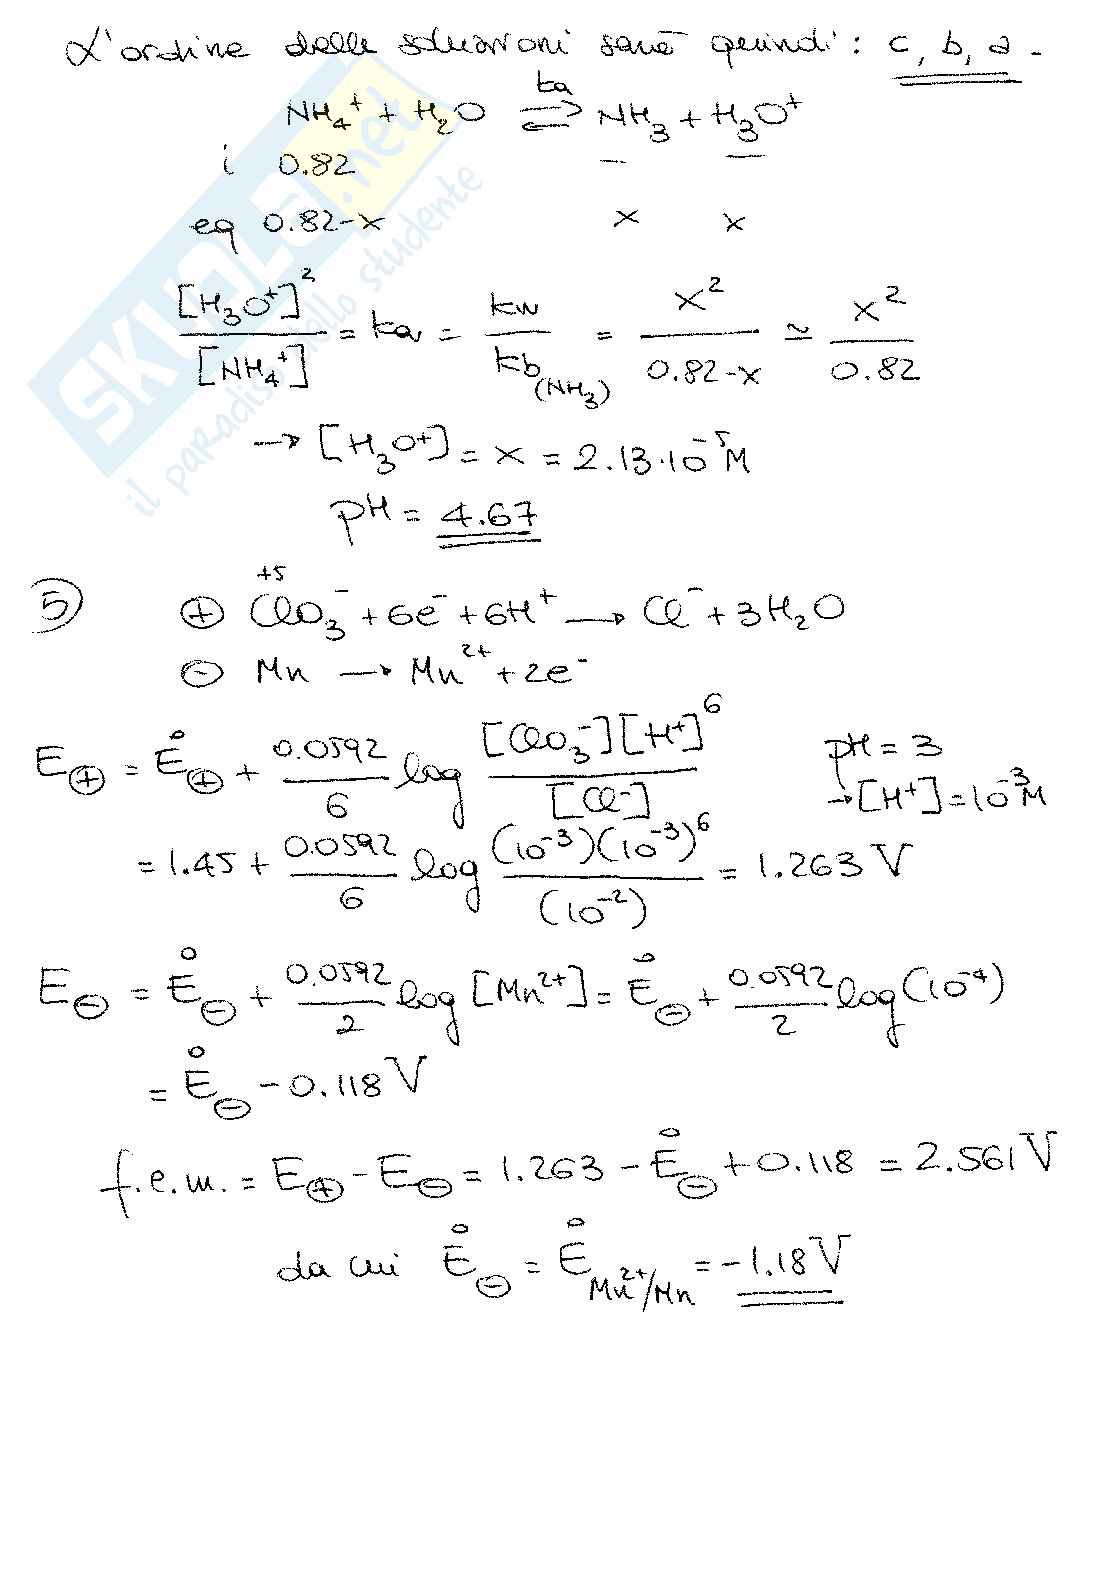 L'ordine delle soluzioni sarà quindi: c, b, a.
NH₄⁺ + H₂O ⇌ (ka) NH₃ + H₃O⁺
i 0.82 — —
eq 0.82-x x x
[H₃O⁺]²/[NH₄⁺] = ka = kw/kb(NH₃) = x²/(0.82-x) ≃ x²/0.82
→ [H₃O⁺] = x = 2.13·10⁻⁵M
pH = 4.67
5) ⊕ ClO₃⁻ (+5) + 6e⁻ + 6H⁺ → Cl⁻ + 3H₂O
⊖ Mn → Mn²⁺ + 2e⁻
E⊕ = E°⊕ + 0.0592/6 log [ClO₃⁻][H⁺]⁶/[Cl⁻] pH = 3
→ [H⁺] = 10⁻³M
= 1.45 + 0.0592/6 log (10⁻³)(10⁻³)⁶/(10⁻²) = 1.263 V
E⊖ = E°⊖ + 0.0592/2 log [Mn²⁺] = E°⊖ + 0.0592/2 log (10⁻⁴)
= E°⊖ - 0.118 V
f.e.m. = E⊕ - E⊖ = 1.263 - E°⊖ + 0.118 = 2.561 V
da cui E°⊖ = E°Mn²⁺/Mn = -1.18 V
SKUOLA.net
il paradiso dello studente